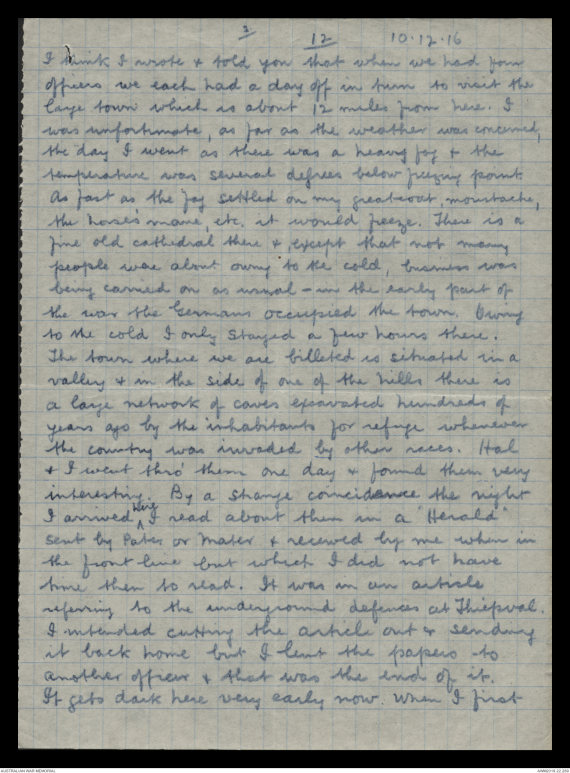 2
12 10.12.16
I think I wrote & told you that when we had four
officers we each had a day off in turn to visit the
large town which is about 12 miles from here. I
was unfortunate, as far as the weather was concerned,
the day I went as there was a heavy fog & the
temperature was several degrees below freezing point.
As fast as the fog settled on my greatcoat, moustache,
the horse's mane, etc. it would freeze. There is a
fine old cathedral there & except that not many
people were about owing to the cold, business was
being carried on as usual - in the early part of
the war the Germans occupied the town. Owing
to the cold I only stayed a few hours there.
The town where we are billeted is situated in a
valley & in the side of one of the hills there is
a large network of caves excavated hundreds of
years ago by the inhabitants for refuge whenever
the country was invaded by other races. Hal
& I went thro' them one day & found them very
interesting. By a strange coincidence the night
I arrived here I read about them in a "Herald"
sent by Pater or Mater & received by me when in
the front line but which I did not have
time then to read. It was in an article
referring to the underground defences at Thiepval.
I intended cutting the article out & sending
it back home but I lent the papers to
another officer & that was the end of it.
It gets dark here very early now. When I first
AUSTRALIAN WAR MEMORIAL